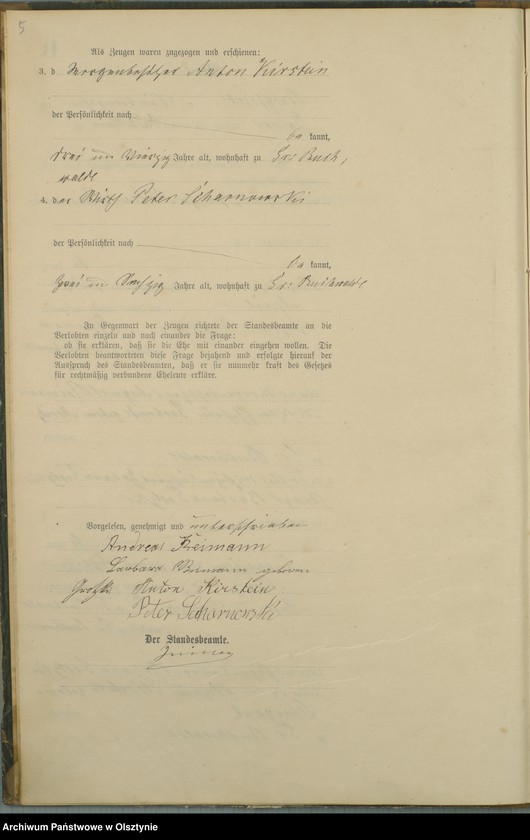 5
Als Zeugen waren zugezogen und erschienen:
3. d Morgenbesitzer Anton Kirstein
der Persönlichkeit nach
be kannt,
drei und Vierzig Jahre alt, wohnhaft zu Gr: Buch,
walde
4. der Wirth Peter Scharnowski
der Persönlichkeit nach
be kannt,
zwei und Sechzig Jahre alt, wohnhaft zu Gr: Buchwalde
In Gegenwart der Zeugen richtete der Standesbeamte an die
Verlobten einzeln und nach einander die Frage:
ob sie erklären, daß sie die Ehe mit einander eingehen wollen. Die
Verlobten beantworteten diese Frage bejahend und erfolgte hierauf der
Ausspruch des Standesbeamten, daß er sie nunmehr kraft des Gesetzes
für rechtmäßig verbundene Eheleute erkläre.
Vorgelesen, genehmigt und unterschrieben
Andreas Freimann
Barbara geboren
Anton Kirstein
Peter Scharnowski
Der Standesbeamte.
Archiwum Państwowe w Olsztynie